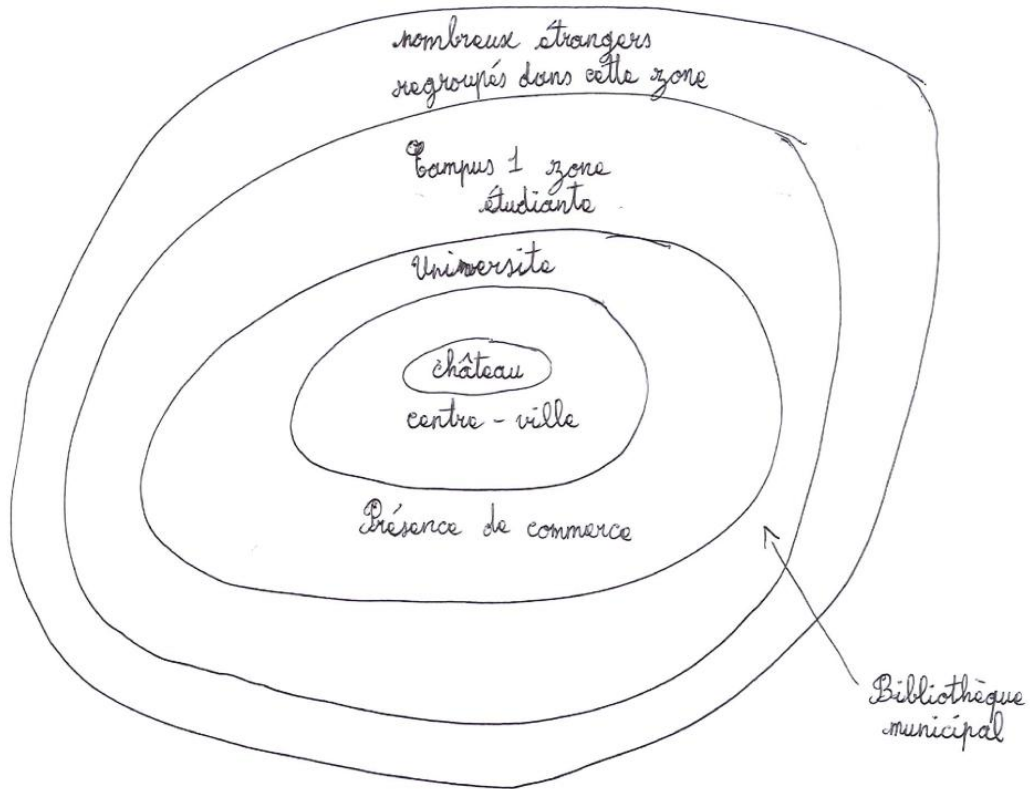 nombreux étrangers
regroupés dans cette zone
Campus 1 zone
étudiante
Université
château
centre - ville
Présence de commerce
Bibliothèque
municipal